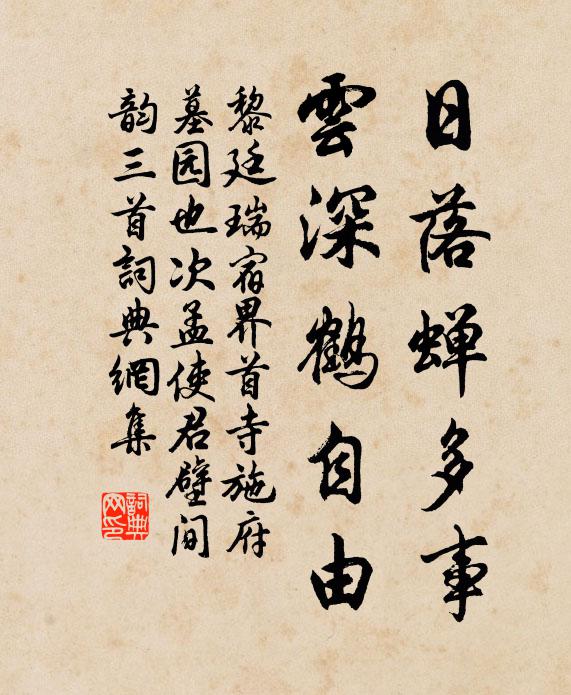 日落蝉多事
雲深鶴自由
黎廷瑞宿界首寺施府
墓园也次孟使君壁间
韵三首詞典網集
詞典
网印